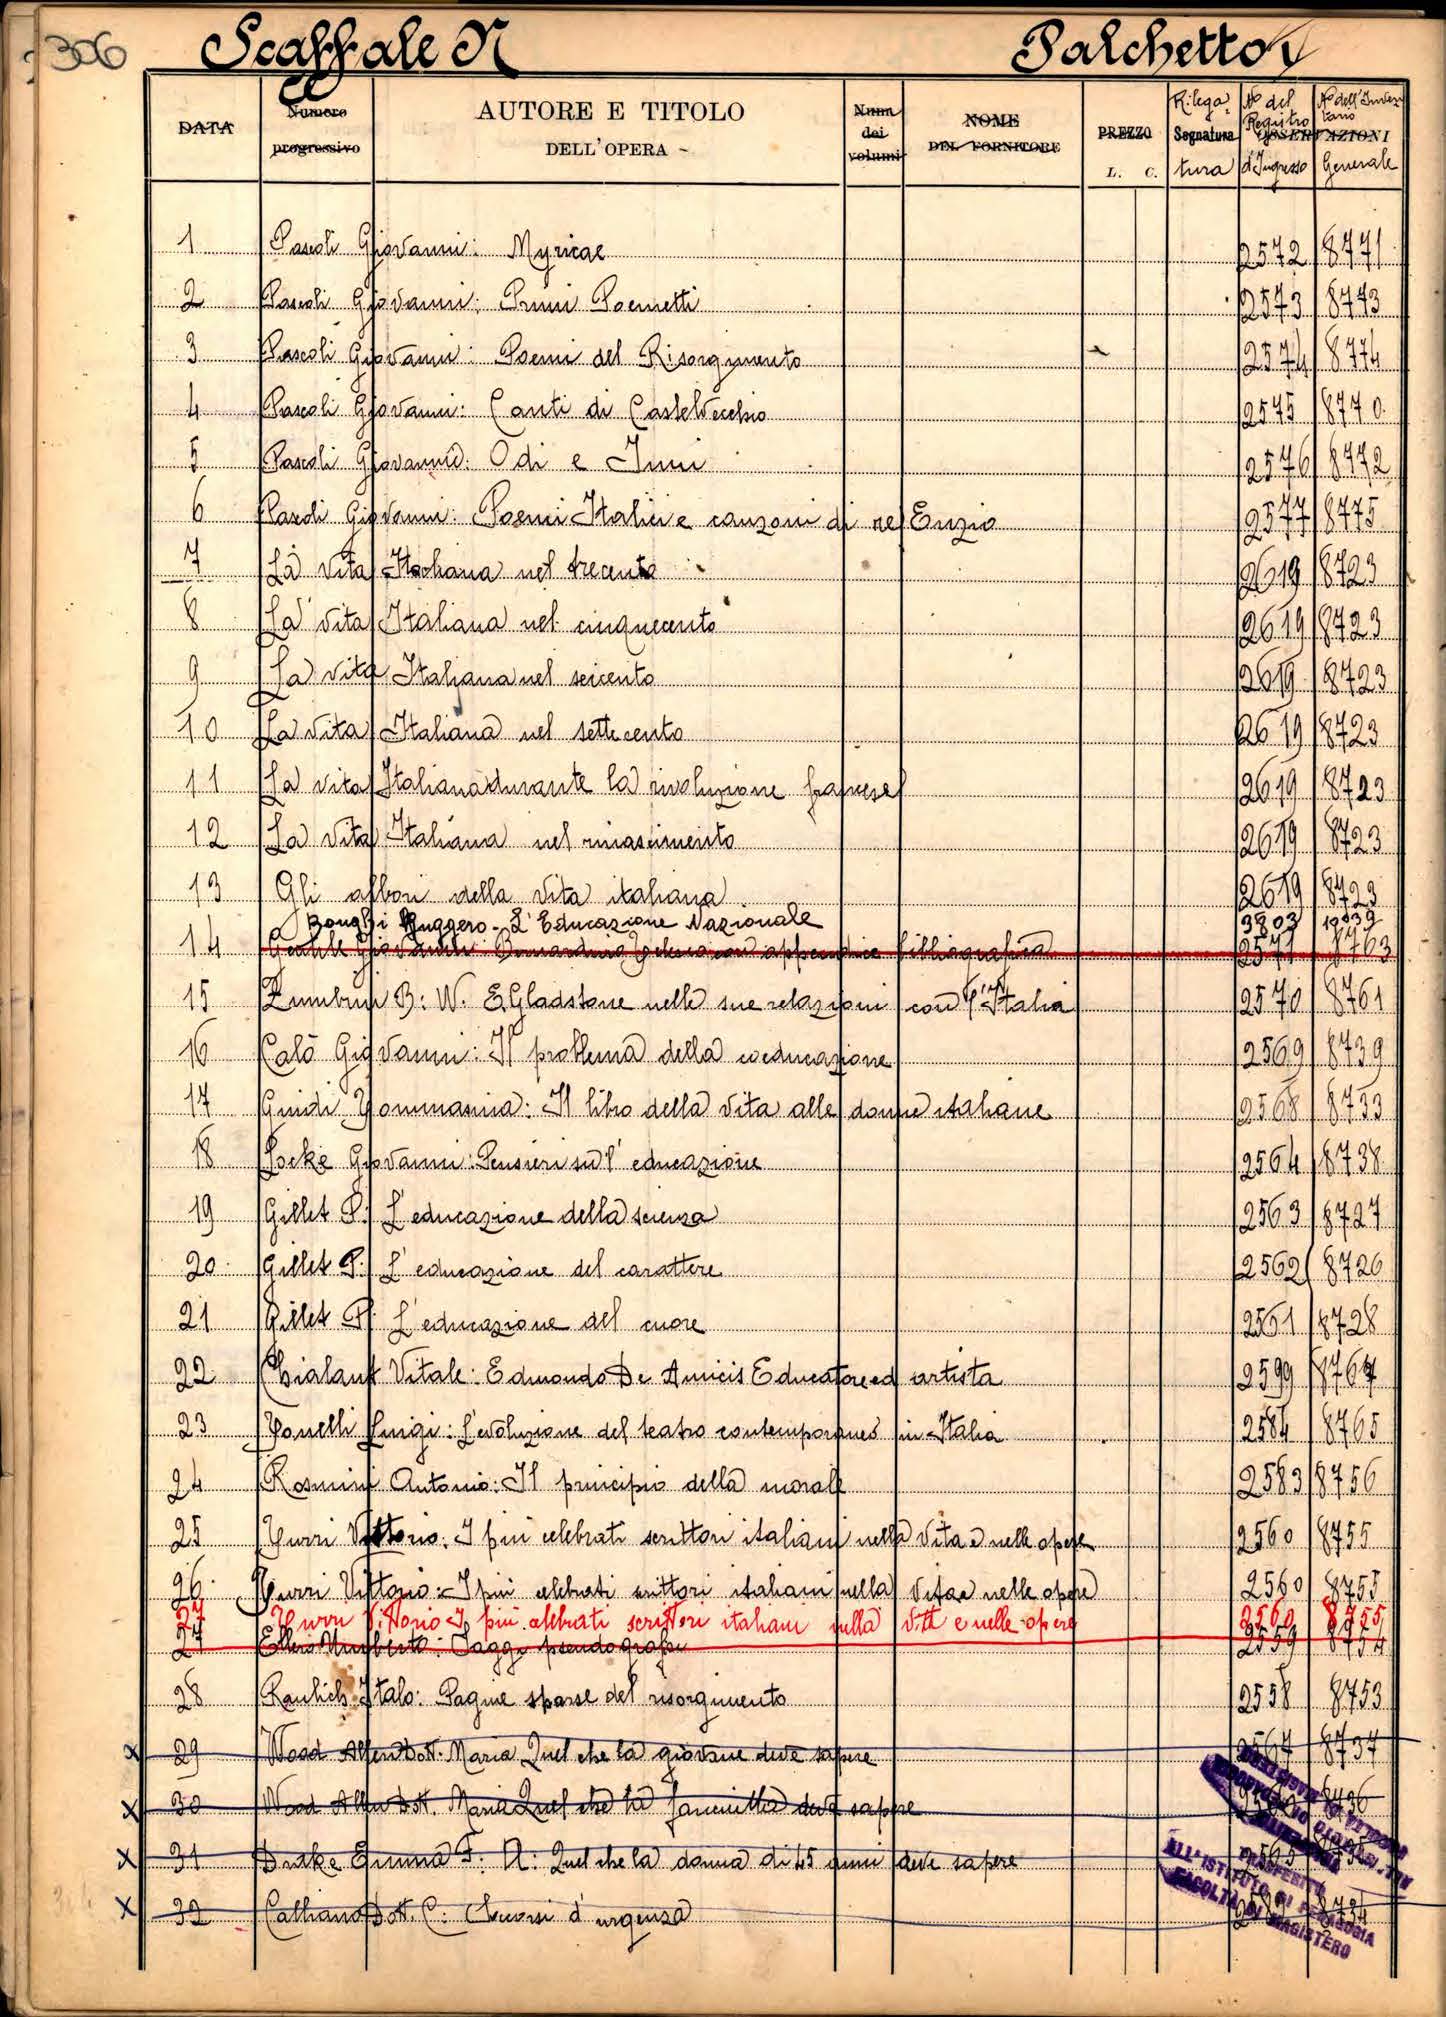 306 Scaffale N Palchetto V
DATA Numero progressivo AUTORE E TITOLO DELL'OPERA Num dei volumi NOME DEL FORNITORE PREZZO L. C. Rilega- Segnatura tura No del Registro d'Ingresso OSSERVAZIONI No dell'Inventario Generale
1 Pascoli Giovanni: Myricae 2572 8771
2 Pascoli Giovanni: Primi Poemetti 2573 8773
3 Pascoli Giovanni: Poemi del Risorgimento 2574 8774
4 Pascoli Giovanni: Canti di Castelvecchio 2575 8770
5 Pascoli Giovanni: Odi e Inni 2576 8772
6 Pascoli Giovanni: Poemi Italici e canzoni di re Enzio 2577 8775
7 La vita Italiana nel trecento 2619 8723
8 La vita Italiana nel cinquecento 2619 8723
9 La vita Italiana nel seicento 2619 8723
10 La vita Italiana nel settecento 2619 8723
11 La vita Italiana durante la rivoluzione francese 2619 8723
12 La vita Italiana nel rinascimento 2619 8723
13 Gli albori della vita italiana 2619 8723
Bonghi Ruggero - L'Educazione Nazionale 3803 10939
14 Gentile Giovanni: Bernardino Telesio con appendice bibliografica 2571 8763
15 Zumbini B: W. E Gladstone nelle sue relazioni con l'Italia 2570 8761
16 Calò Giovanni: Il problema della coeducazione 2569 8739
17 Guidi Tommasina: Il libro della vita alle donne italiane 2568 8733
18 Locke Giovanni: Pensieri sull' educazione 2564 8738
19 Gillet P: L'educazione della scienza 2563 8727
20 Gillet P: L'educazione del carattere 2562 8726
21 Gillet P: L'educazione del cuore 2561 8728
22 Chialant Vitale: Edmondo De Amicis Educatore ed artista 2599 8767
23 Tonelli Luigi: L'evoluzione del teatro contemporaneo in Italia 2584 8765
24 Rosmini Antonio: Il principio della morale 2583 8756
25 Turri Vittorio: I più celebrati scrittori italiani nella vita e nelle opere 2560 8755
26 Turri Vittorio: I più celebrati scrittori italiani nella vita e nelle opere 2560 8755
27 Turri Vittorio I più celebrati scrittori italiani nella vita e nelle opere 2560 8755
27 Ellero Umberto: Saggi pseudografia 2559 8754
28 Raulich Italo: Pagine sparse del risorgimento 2558 8753
x 29 Wood Allen Dott. Maria Quel che la giovane deve sapere 2567 8737
x 30 Wood Allen Dott. Maria Quel che la fanciulla deve sapere 8736
x 31 Drake Emma F. A: Quel che la donna di 45 anni deve sapere 2565 8735
x 32 Calliano Dott. C: Soccorsi d'urgenza 8734
TRASFERITO
ALL'ISTITUTO DI PEDAGOGIA
FACOLTÀ DI MAGISTERO